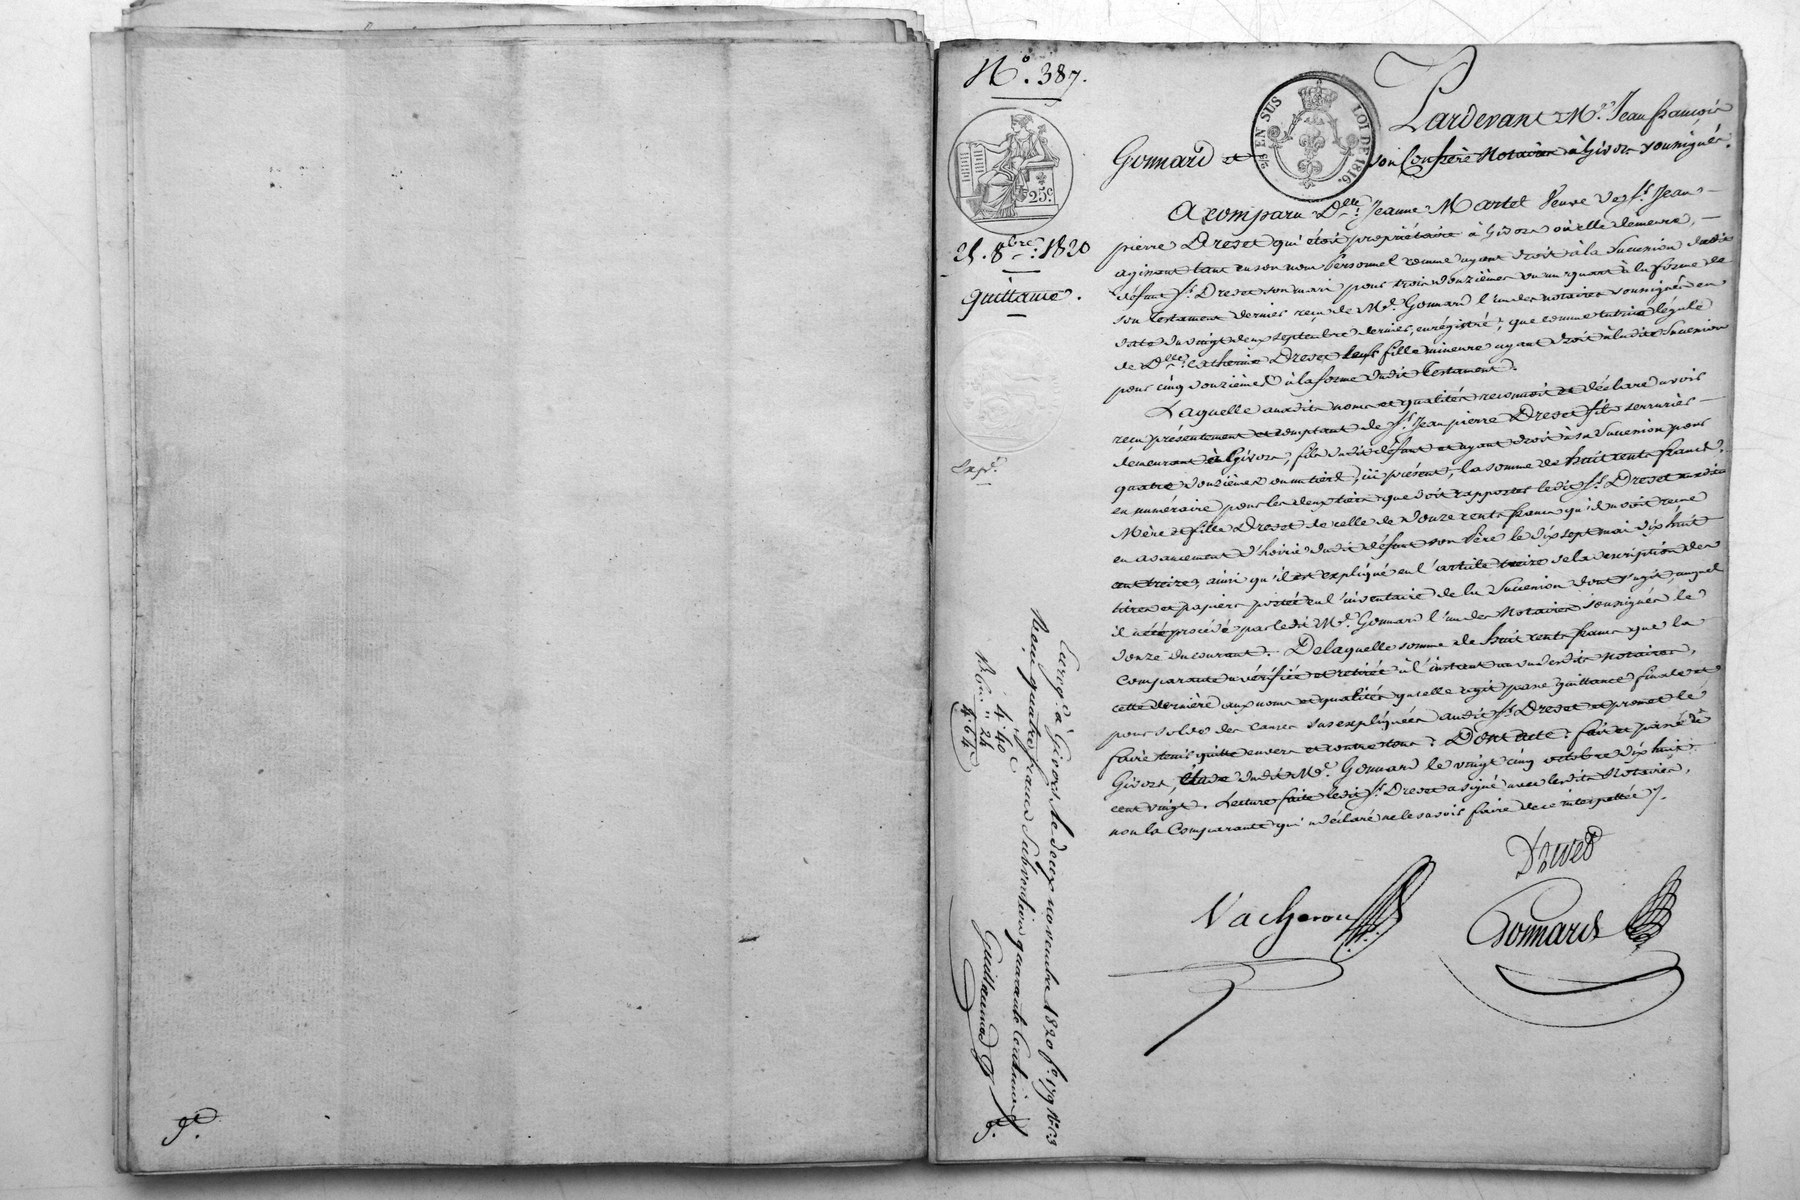 N.° 387.
25. 8bre. 1820
quittance.
Exp.
25c.
ES EN SUS
LOI DE 1816.
Pardevant Me. Jean françois
Gonnard et son Confrère Notaires à Givors soussignés.
A comparu Delle. Jeanne Martel Veuve de Sr. Jean
pierre Drevet qui étoit propriétaire à Givors où elle demeure,
agissant tant en son nom Personnel comme ayant droit à la Succession dudit
défunt Sr. Drevet son mari pour trois douzièmes ou un quart à la forme de
son testament dernier reçu de Me. Gonnard l'un des notaires soussignés en
date du vingt deux septembre dernier, enrégistré; que comme tutrice légale
de Delle. Catherine Drevet leur fille mineure ayant droit à ladite Succession
pour cinq douzièmes à la forme dudit Testament.
Laquelle auxdits noms et qualités reconnoit et déclare avoir
reçu présentement et comptant de Sr. Jean pierre Drevet fils serrurier
demeurant à Givors, fils dudit défunt et ayant droit à sa Succession pour
quatre douzièmes ou un tiers, ici présent, la somme de huit cents francs
en numéraire pour les deux tiers que doit rapporter ledit Sr. Drevet auxdites
Mère et fille Drevet de celle de douze cents francs qu'il avoit reçue
en avancement d'hoirie dudit défunt son Père le dix sept mai dix huit
cent treize, ainsi qu'il est expliqué en l'article treize de la description des
titres et papiers portée en l'inventaire de la Succession dont s'agit, auquel
il a été procédé par ledit Me. Gonnard l'un des Notaires soussignés le
douze du courant. De laquelle somme de huit cents francs que la
Comparante a vérifiée et retirée à l'instant au vu desdits Notaires,
cette dernière aux noms et qualités qu'elle agit passe quittance finale et
pour solde des causes sus expliquées audit Sr. Drevet et promet le
faire tenir quitte envers et contre tous. Dont acte: fait et passé à
Givors, étude dudit Me. Gonnard le vingt cinq octobre dix huit
cent vingt. Lecture faite ledit Sr. Drevet a signé avec lesdits Notaires,
non la Comparante qui a déclaré ne le savoir faire de ce interpellée.
Drevet
Vacheron
Gonnard
Enregé. à Givors le deux novembre 1820 fo. 179 Ro. C3
Reçu quatre francs Subvention quarante Centimes
Guillermet
4. 40
" 24
4. 64